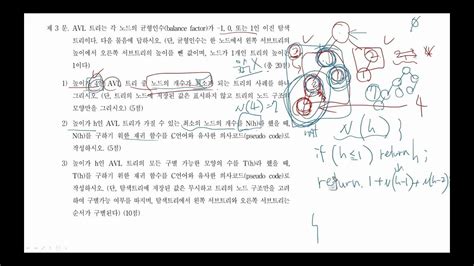 제 3 문. AVL 트리는 각 노드의 균형인수(balance factor)가 -1, 0, 또는 1인 이진 탐색
트리이다. 다음 물음에 답하시오. (단, 균형인수는 한 노드에서 왼쪽 서브트리의
높이에서 오른쪽 서브트리의 높이를 뺀 값이며, 노드가 1개인 트리의 높이는
1이다) (총 20점)
1) 높이가 4인 AVL 트리 중 노드의 개수가 최소가 되는 트리의 사례를 하나
그리시오. (단, 트리의 노드에 저장된 값은 고려하지 않고 트리의 노드 구조의
모양만을 그리시오) (5점)
2) 높이가 h인 AVL 트리가 가질 수 있는 최소의 노드의 개수를 N(h)라 했을 때,
N(h)를 구하기 위한 재귀 함수를 C언어와 유사한 의사코드(pseudo code)로
작성하시오. (5점)
3) 높이가 h인 AVL 트리의 모든 구별 가능한 모양의 수를 T(h)라 했을 때,
T(h)를 구하기 위한 재귀 함수를 C언어와 유사한 의사코드(pseudo code)로
작성하시오. (단, 탐색트리에 저장된 값은 무시하고 트리의 노드 구조만을 고려
하여 구별가능 여부를 따지며, 탐색트리에서 왼쪽 서브트리와 오른쪽 서브트리는
순서가 구별된다) (10점)
N(4)=7
4
N(h)
if (h≤1) return h;
return 1+N(h-1)+N(h-2)